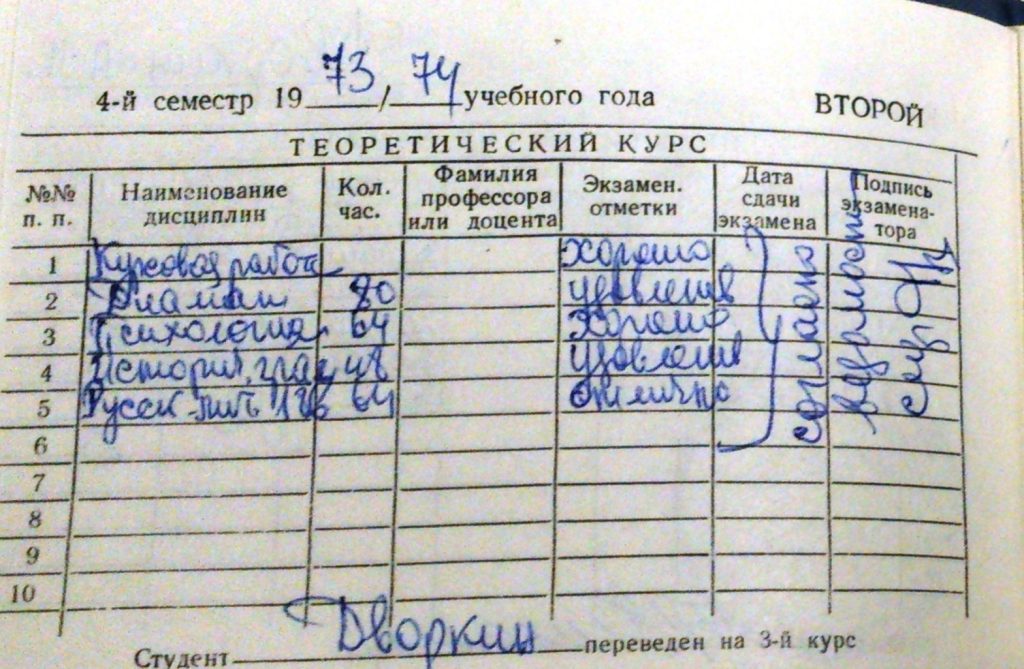 4-й семестр 19 73 / 74 учебного года ВТОРОЙ
ТЕОРЕТИЧЕСКИЙ КУРС
№№ п. п. Наименование дисциплин Кол. час. Фамилия профессора или доцента Экзамен. отметки Дата сдачи экзамена Подпись экзамена-тора
1 Курсовая работа хорошо
2 Диамат 80 удовлетв
3 Психология 64 хорошо
4 История, удовлетв
5 Русск. лит. 64 отлично
6
7
8
9
10
согласно
ведомости
Студент Дворкин переведен на 3-й курс